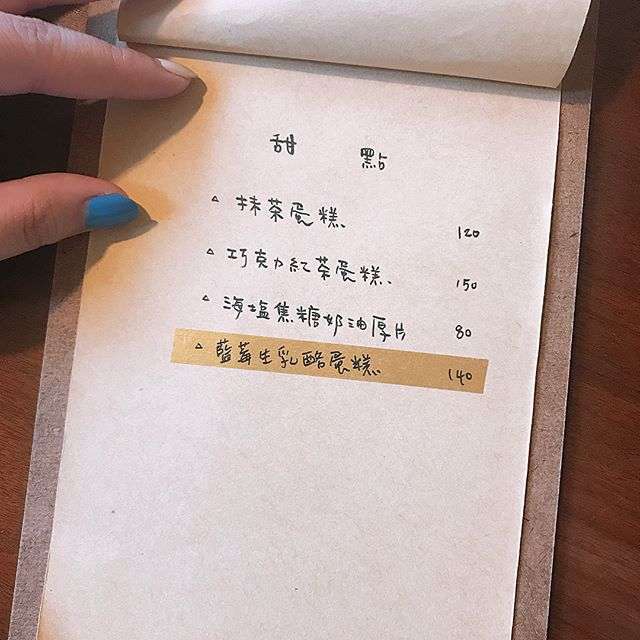 甜 點
△ 抹茶蛋糕 120
△ 巧克力紅茶蛋糕 150
△ 海塩焦糖奶油厚片 80
△ 藍莓生乳酪蛋糕 140